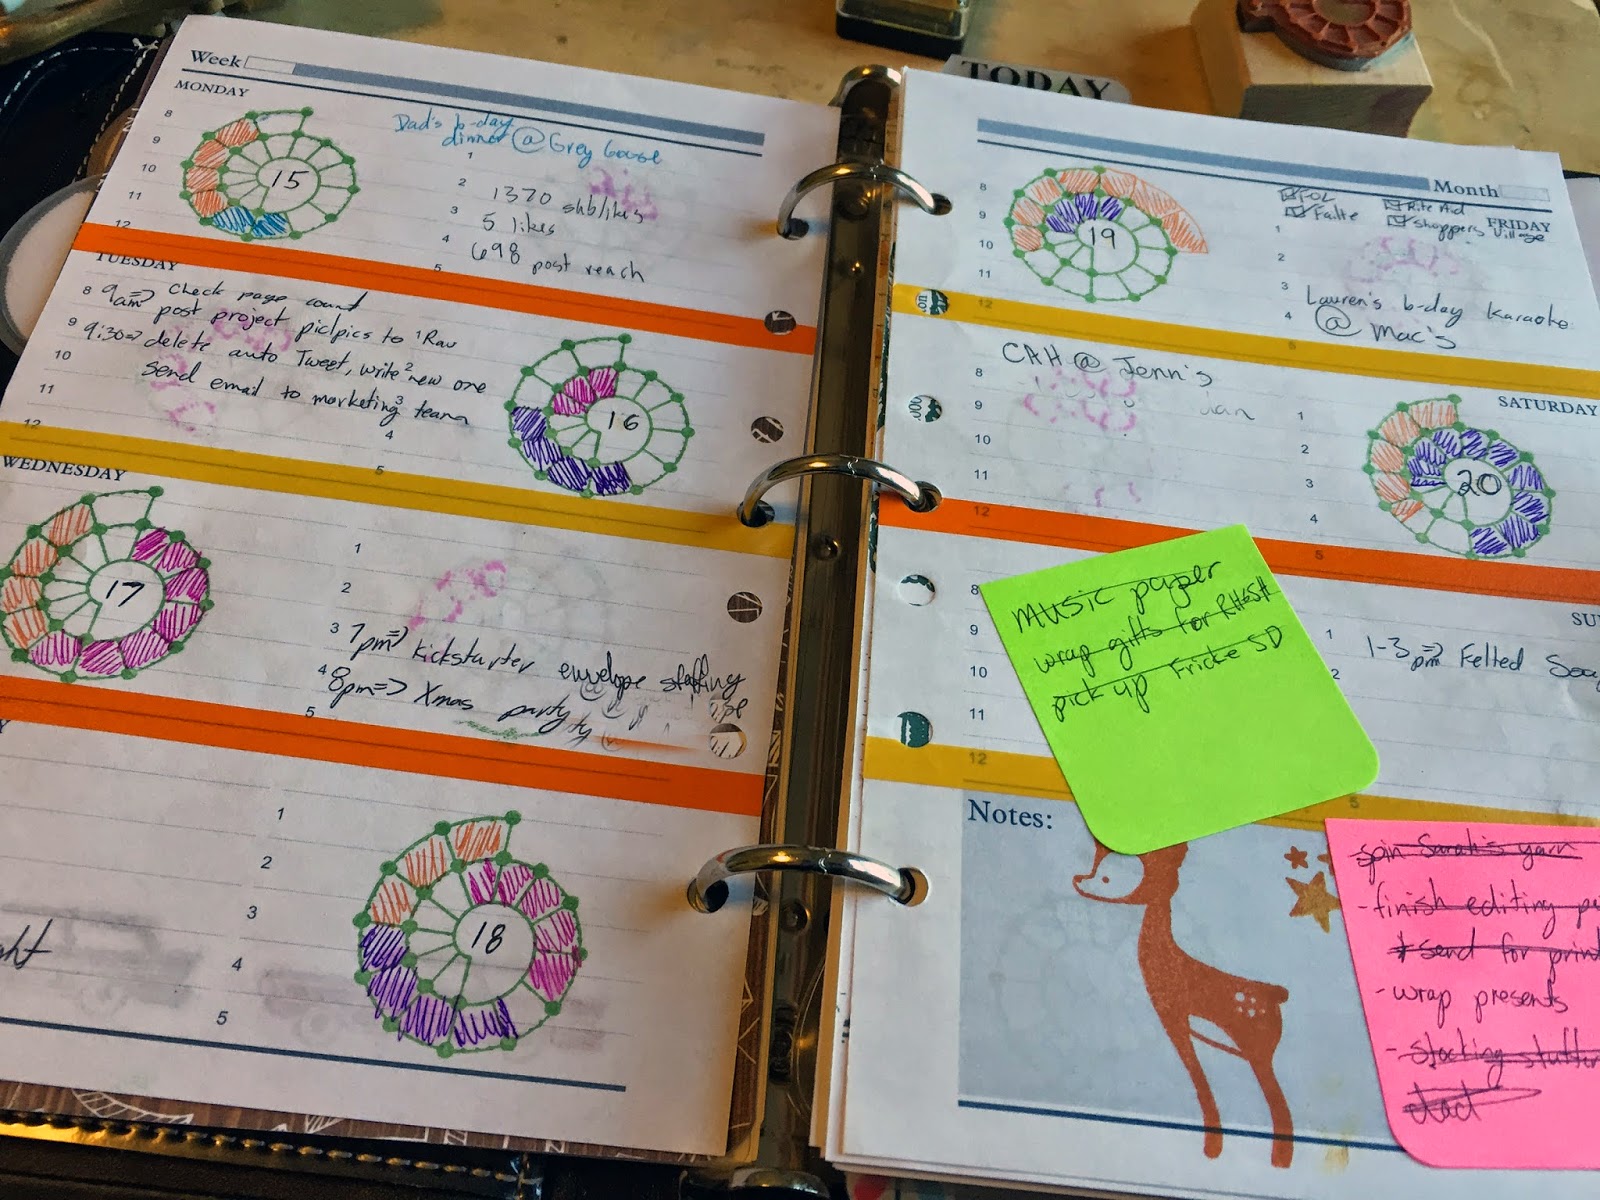 TODAY
Week
MONDAY
8
9
10
11
12
15
Dad's b-day
dinner @ Grey Goose
1
2
3
4
5
1370 shb/likes
5 likes
698 post reach
TUESDAY
8
9
10
11
12
9am => Check page count
post project pics to Rav
9:30 => delete auto Tweet, write new one
send email to marketing team
1
2
3
4
5
16
WEDNESDAY
17
1
2
3
4
5
7pm => Kickstarter envelope stuffing
8pm => Xmas party
1
2
3
4
5
18
Month
FRIDAY
8
9
10
11
12
19
FOL
Rite Aid
Failte
Shoppers Village
1
2
3
4
5
Lauren's b-day karaoke
@ Mac's
SATURDAY
CAH @ Jenn's
8
9
10
11
12
1
2
3
4
5
20
SU
8
9
10
11
12
1
2
5
1-3pm => Felted Soap
music paper
wrap gifts for RHESH
pick up Fricke SD
Notes:
spin Sarah's yarn
- finish editing
* send for print
- wrap presents
- stocking stuffer